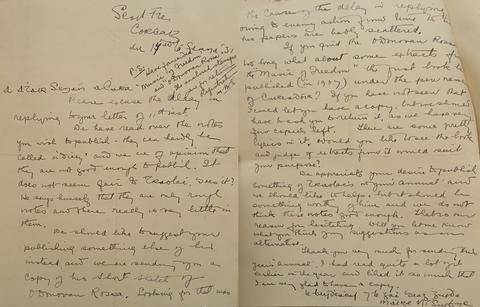 Sept Fre
Corcaig
P.S. Have forwarded
"Music of Freedom"
and O'Donovan Rossa
A Sheagáin, a Chara,
Please excuse the delay in
replying to your letter of 11th inst.
We have read over the notes
you wish to publish - they can hardly be
called a Diary and we are of opinion that
they are not good enough to publish. It
does not seem fair to Traolac, does it?
He says himself that they are only rough
notes and there really is very little in
them.
We should like to suggest your
publishing something else of his
instead and we are sending you a
copy of his short sketch of
O'Donovan Rossa. Looking for that was
the cause of the delay in replying
owing to enemy action from time to time
his papers are badly scattered.
If you find the O'Donovan Rossa
too long what about some extracts from
the Music of Freedom - the first book he
published (in 1907) under the pen name
of Cuireadóir? If you have not seen that
I could let you have a copy, but we should
have to ask you to return it, as we have very
few copies left. There are some pretty
lyrics in it. Would you like to see the book
and judge if extracts from it would suit
your purpose?
We appreciate your desire to publish
something of Traolac's in your annual and
we should like to help, but it should be
something worthy of him and we do not
think these notes good enough. That is our
reason for hesitating. Will you let me know
what you think of my suggestions as an
alternative.
Thank you very much for sending the
annual. I had read quite a lot of it
earlier in the year and liked it so much that
I am very glad to have a copy.